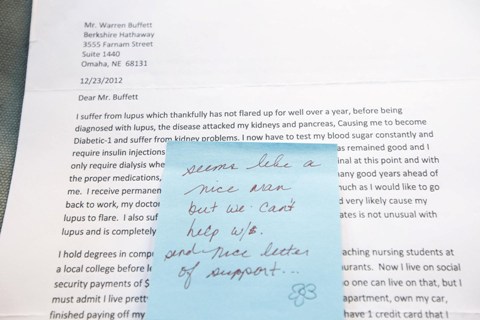 Mr. Warren Buffett
Berkshire Hathaway
3555 Farnam Street
Suite 1440
Omaha, NE 68131
12/23/2012
Dear Mr. Buffett
I suffer from lupus which thankfully has not flared up for well over a year, before being
diagnosed with lupus, the disease attacked my kidneys and pancreas, Causing me to become
Diabetic-1 and suffer from kidney problems. I now have to test my blood sugar constantly and
require insulin injections as remained good and I
only require dialysis whe inal at this point and with
the proper medications, any good years ahead of
me. I receive permanen uch as I would like to go
back to work, my docto d very likely cause my
lupus to flare. I also suf ates is not unusual with
lupus and is completely
I hold degrees in comp aching nursing students at
a local college before le urants. Now I live on social
security payments of $ o one can live on that, but I
must admit I live prett apartment, own my car,
finished paying off my have 1 credit card that I
seems like a
nice man
but we can't
help w/$.
send nice letter
of support...